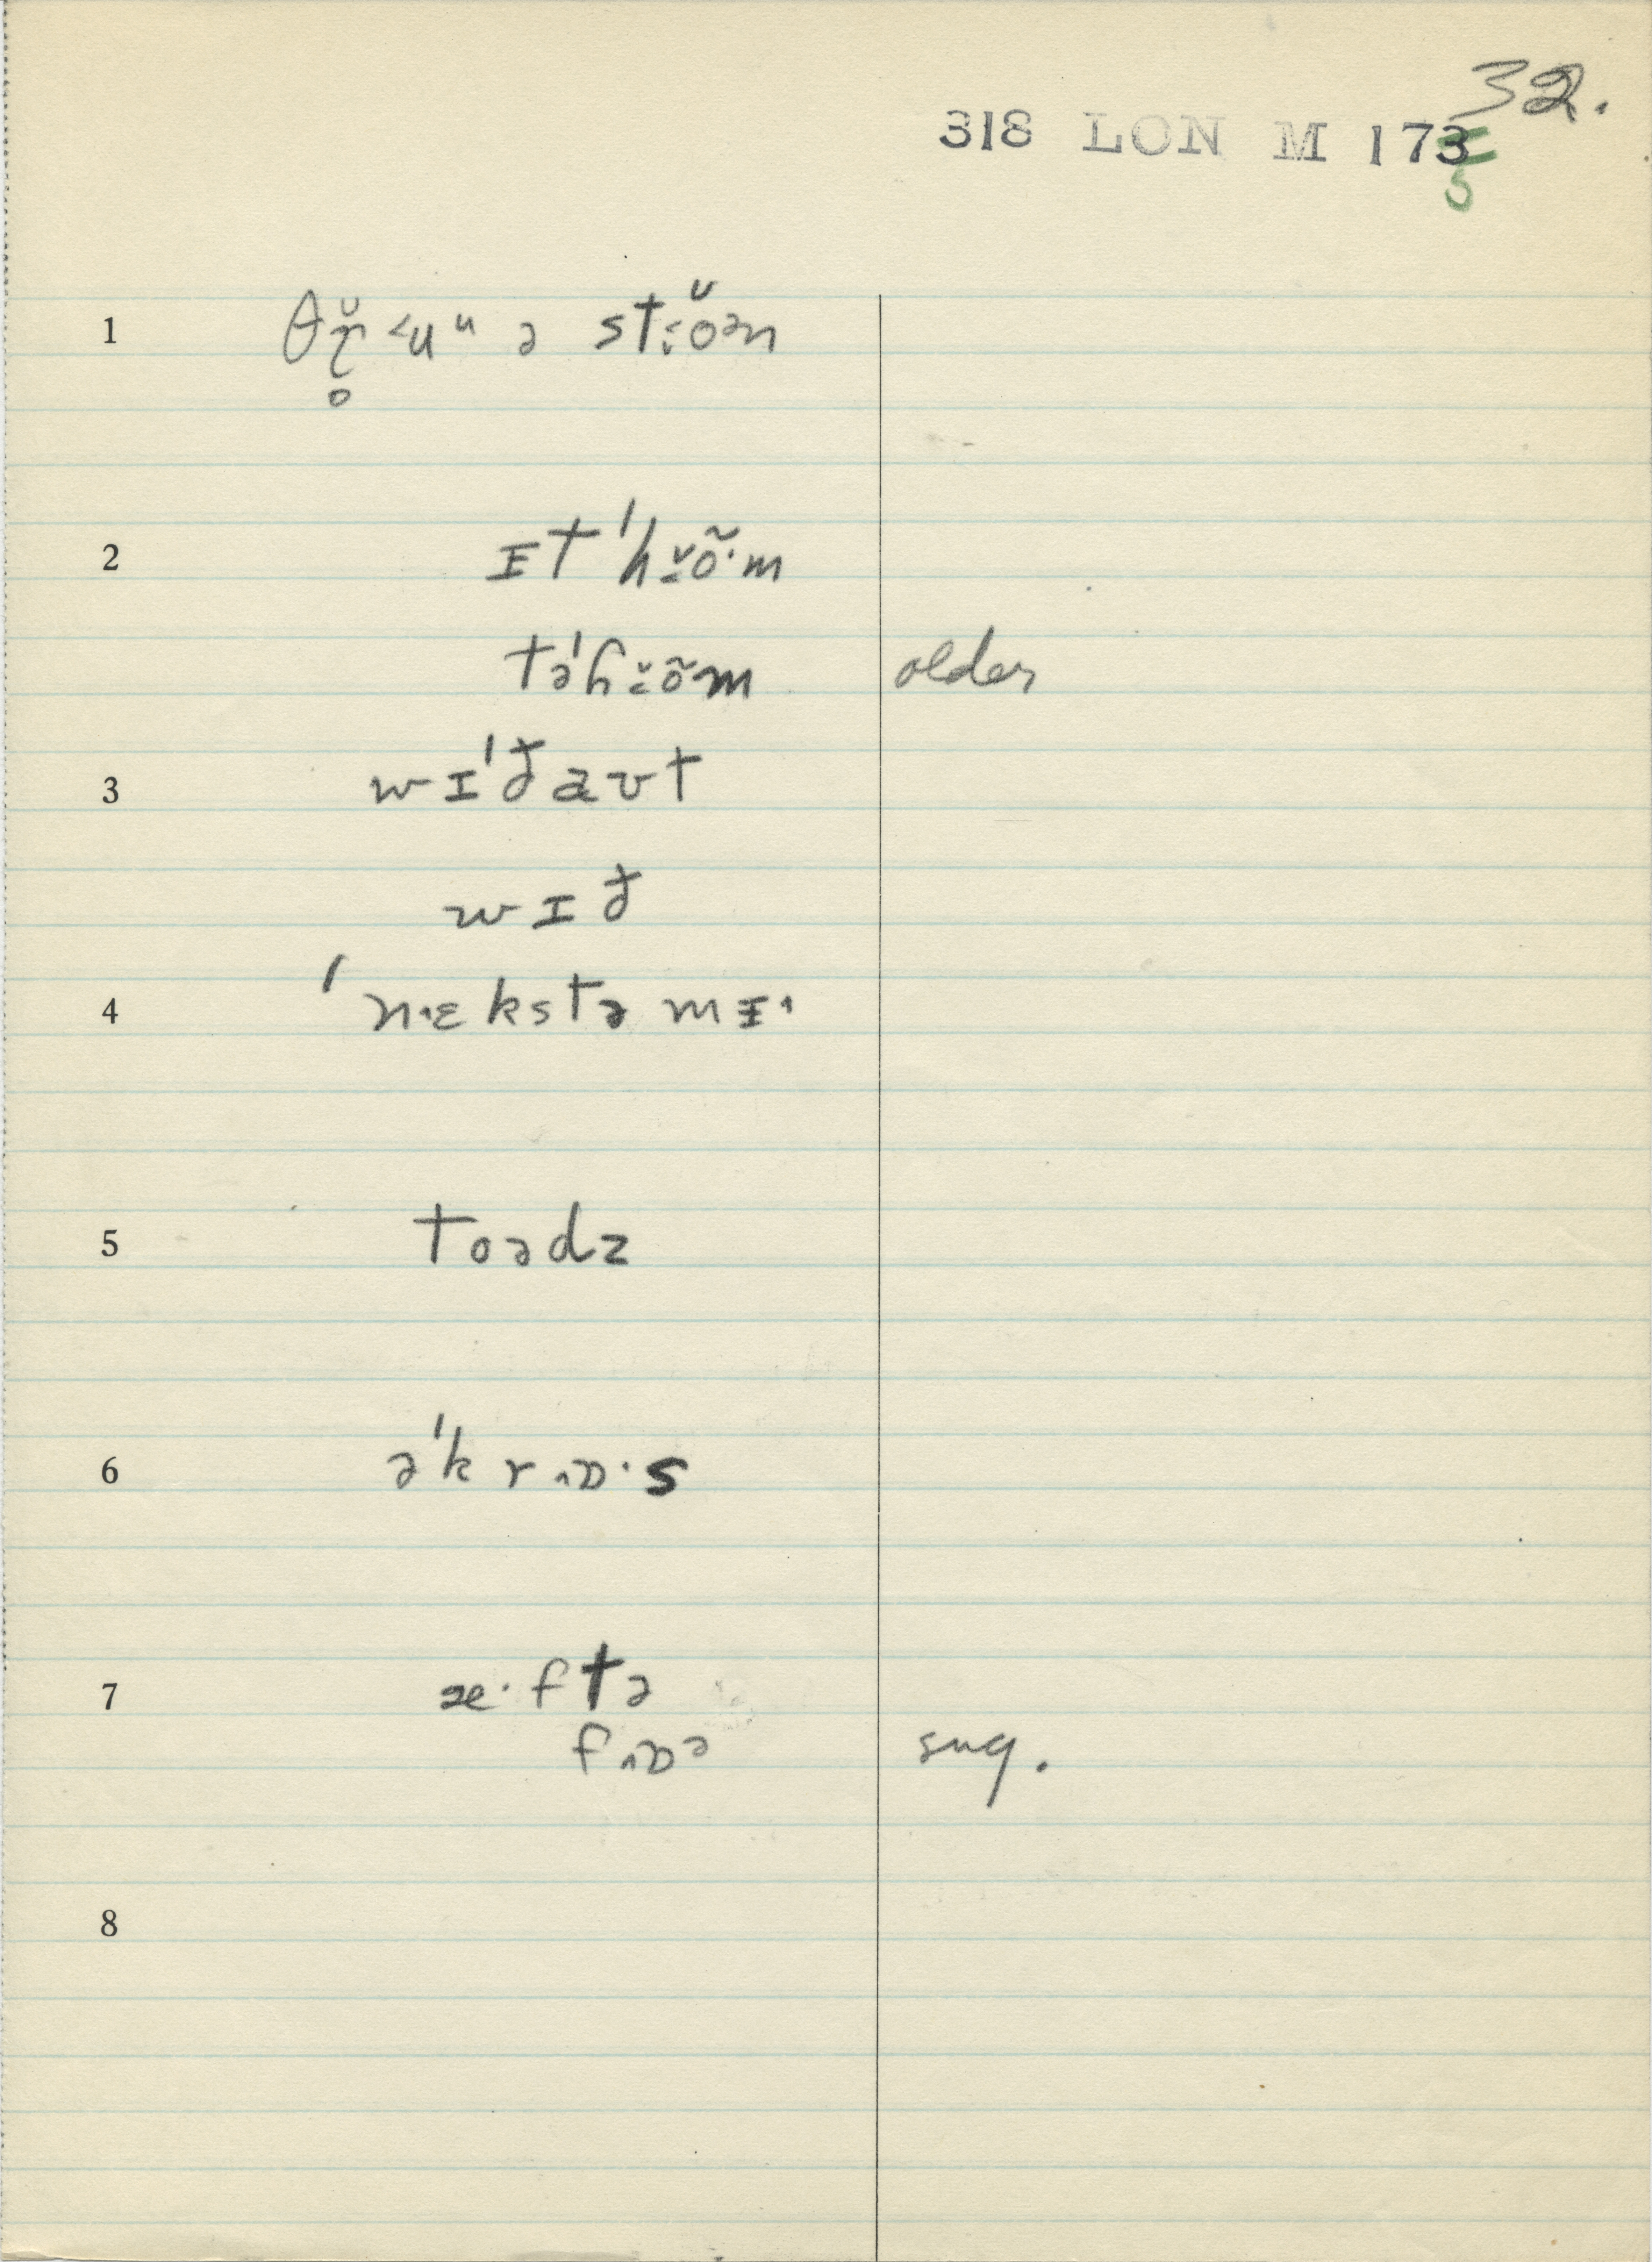 32.
318 LON M 173
5
1 θɤ̥̆ ˂uᵘ ə st˂ŏən
2 ɪt ˈh˂õ·m
təˈh˂õm older
3 wɪˈðaʊt
wɪð
4 ˈn·ɛkstə mɪ·
5 toədz
6 əˈkrɒ·s
7 æ·ftə
fɒə sug.
8